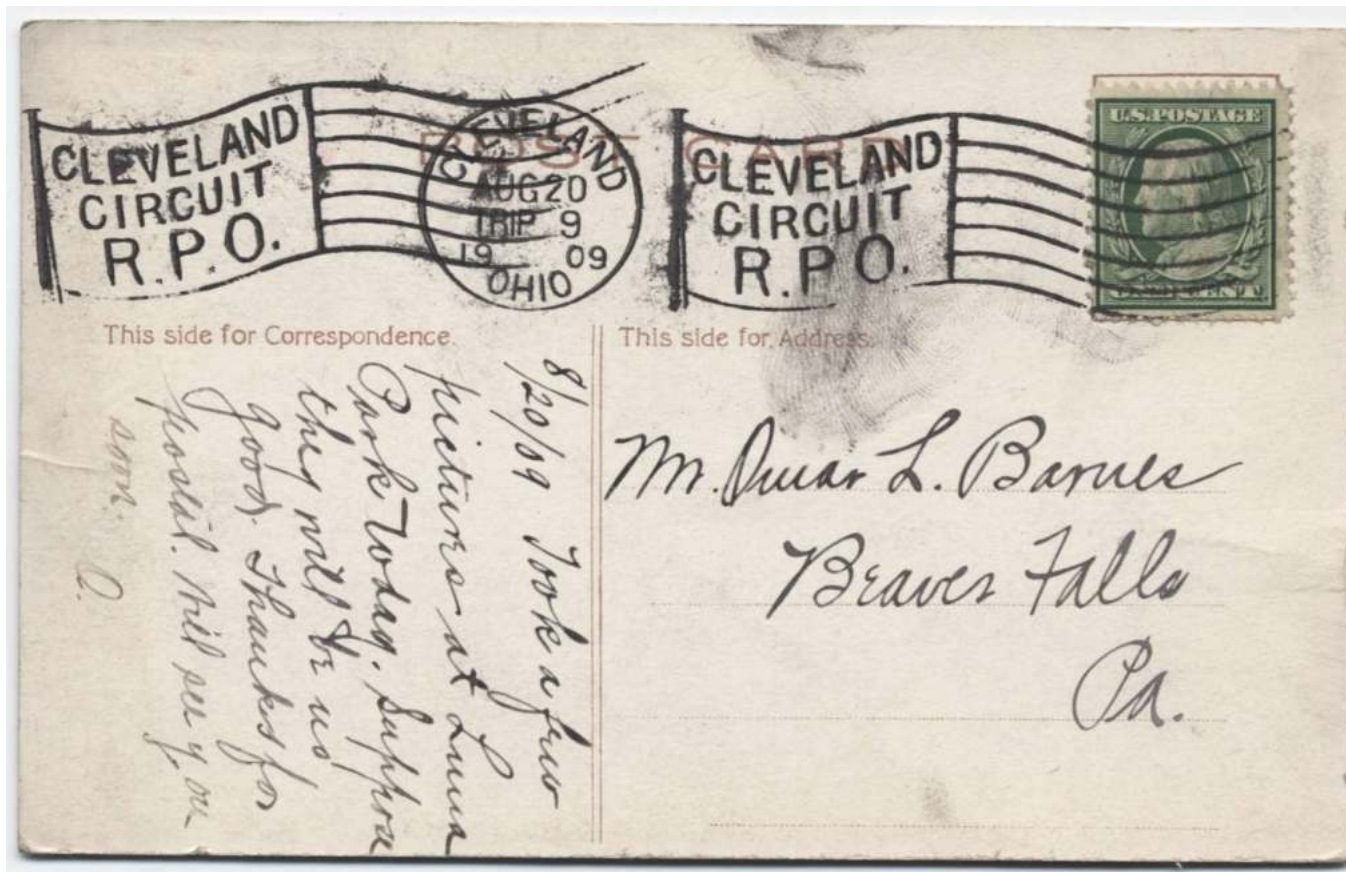 CLEVELAND
CIRCUIT
R.P.O.
CLEVELAND
AUG 20
TRIP 9
19 09
OHIO
CLEVELAND
CIRCUIT
R.P.O.
U.S. POSTAGE
POST CARD
This side for Correspondence.
This side for Address.
8/20/09 Took a few
pictures at Luna
Park Today. Suppose
they will be no
good. Thanks for
postal. Will see you
soon. O.
Mr. Omar L. Barnes
Beaver Falls
Pa.